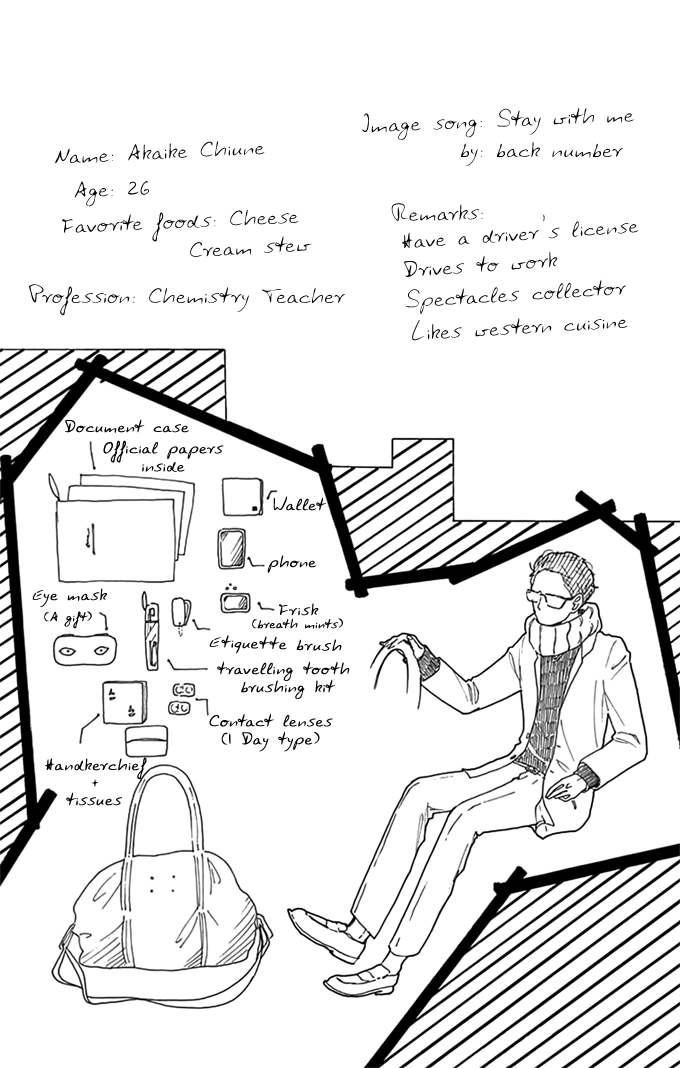 Name: Akaike Chiune
Age: 26
Favorite foods: Cheese
Cream stew
Profession: Chemistry Teacher
Image song: Stay with me
by: back number
Remarks:
Have a driver's license
Drives to work
Spectacles collector
Likes western cuisine
Document case
Official papers
inside
Wallet
phone
Frisk
(breath mints)
Eye mask
(A gift)
Etiquette brush
travelling tooth
brushing kit
Contact lenses
(1 Day type)
Handkerchief
+
tissues